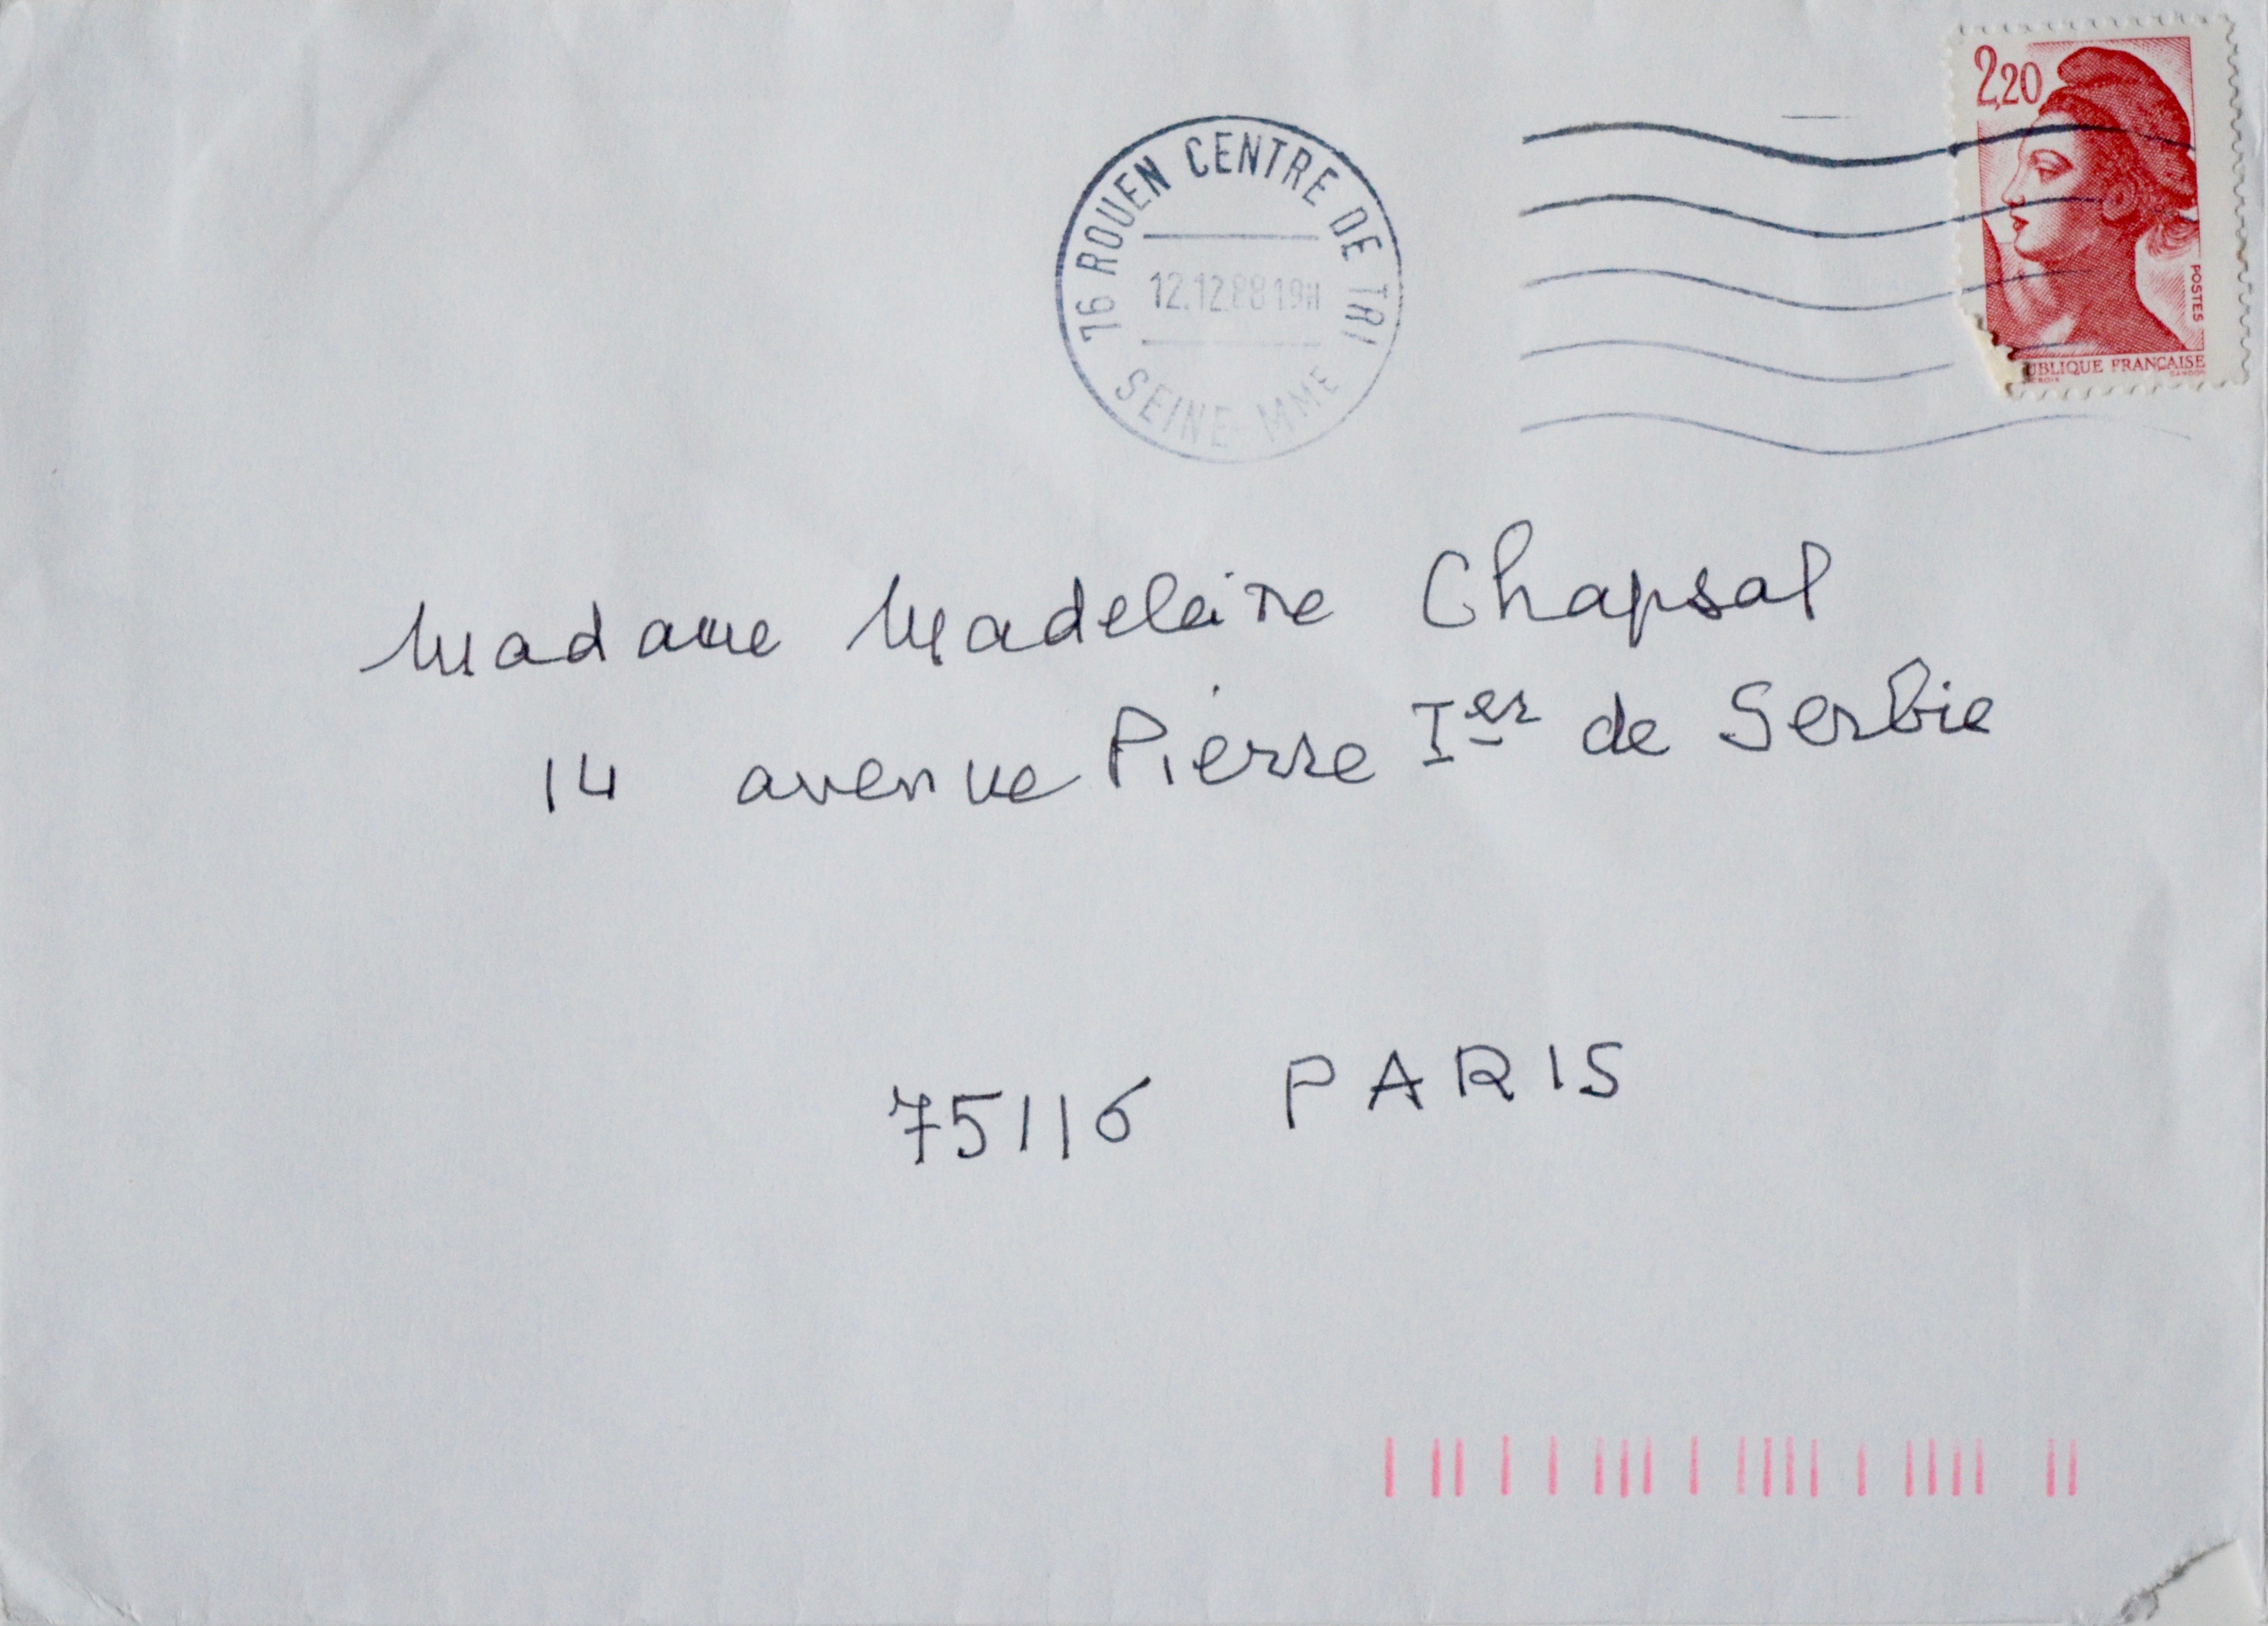 2,20
POSTES
UBLIQUE FRANÇAISE
GANDON
76 ROUEN CENTRE DE TRI
12.12.88 19H
SEINE-MME
Madame Madeleine Chapsal
14 avenue Pierre Ier de Serbie
75116 PARIS